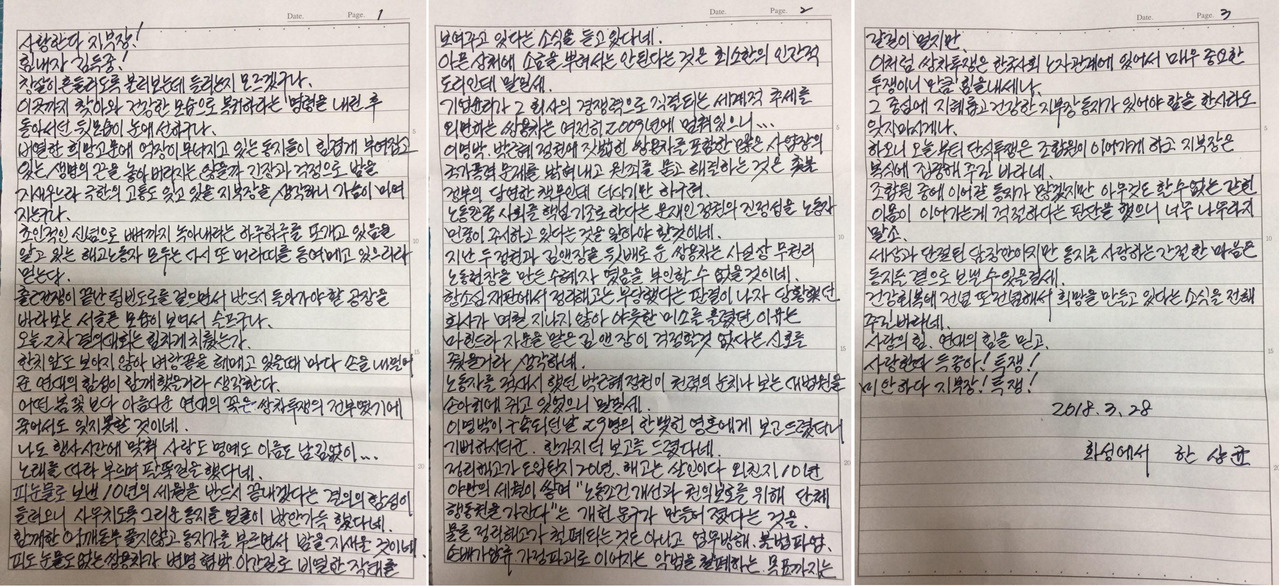 Date. Page. 1
사랑한다 지부장!
힘내자 김득중!
창살이 흔들리도록 불러보는데 들리는지 모르겠구나.
이곳까지 찾아와 건강한 모습으로 복귀하라는 명령을 내린 후
돌아서던 뒷모습이 눈에 선하구나.
비열한 희망고문에 억장이 무너지고 있는 동지들이 힘겹게 부여잡고
있는 생명의 끈을 놓아 버리지는 않을까 긴장과 걱정으로 밤을
지새우느라 극한의 고통도 잊고 있을 지부장을 생각하니 가슴이 미어
지는구나.
초인적인 신념으로 뼈까지 녹아내리는 하루하루를 쪼개고 있음을
알고 있는 해고노동자 모두는 다시 또 머리띠를 동여메고 있으리라
믿는다.
출근전쟁이 끝난 텅빈도로를 걸으면서 반드시 돌아가야 할 공장을
바라보는 서글픈 모습이 보여서 슬프구나.
오늘 2차 결의대회는 힘차게 치렀는가.
한치 앞도 보이지 않아 벼랑끝을 헤메고 있을때 마다 손을 내밀어
준 연대의 함성이 함께 했을거라 생각한다.
어떤 봄 꽃 보다 아름다운 연대의 꽃은 쌍차투쟁의 전부였기에
죽어서도 잊지못할 것이네.
나도 행사시간에 맞춰 사랑도 명예도 이름도 남김없이...
노래를 따라 부르며 팔뚝질을 했다네.
피눈물로 보낸 10년의 세월을 반드시 끝내겠다는 결의의 함성이
들려오니 사무치도록 그리운 동지들 얼굴이 방안가득 했다네.
함께한 이 개동무들 풀지않고 동자가를 부르면서 밤을 지새울 것이네.
피도 눈물도없는 쌍용차가 변명 협박 이간질로 비열한 작태를
Date. Page. 2
보여주고 있다는 소식을 듣고 있다네.
아픈 상처에 소금을 뿌려서는 안된다는 것은 최소한의 인간적
도리인데 말일세.
기업윤리가 그 회사의 경쟁력으로 직결되는 세계적 추세를
외면하는 쌍용차는 여전히 2009년에 멈춰있으니...
이명박, 박근혜 정권에 짓밟힌 쌍용차를 포함한 많은 사업장의
국가폭력 문제를 밝혀내고 원죄를 묻고 해결하는 것은 촛불
정부의 당연한 책무인데 더디기만 하구려.
노동존중 사회를 핵심 기조로 한다는 문재인정권의 진정성을 노동자
민중이 주시하고 있다는 것을 알아야 할것이네.
지난 두정권과 김앤장을 뒷배로 둔 쌍용차는 사실상 무권리
노동현장을 만든 수혜자 였음을 부인할 수 없을것이네.
항소심 재판에서 정리해고는 부당했다는 판결이 나자 당황했던
회사가 며칠 지나지 않아 야릇한 미소를 흘렸던 이유는
마힌드라 자문을 맡은 김앤장이 걱정할것 없다는 신호를
줬을거라 생각하네.
노동자를 적대시 했던 박근혜정권이 권력의 눈치나 보는 대법원을
손아귀에 쥐고 있었으니 말일세.
이명박이 구속되던날 29명의 한맺힌 영혼에게 보고 드렸더니
기뻐하시더군. 한가지 더 보고를 드렸다네.
정리해고가 도입된지 20년. 해고는 살인이다 외친지 10년
야만의 세월이 쌓여 "노동조건 개선과 권익보호를 위해 단체
행동권을 가진다"는 개헌 문구가 만들어 졌다는 것을.
물론 정리해고가 철폐되는 것은 아니고 업무방해. 불법파업.
손배가압류 가정파괴로 이어지는 악법을 철폐하는 목표까지는
Date. Page. 3
갈길이 멀지만,
이처럼 쌍차투쟁은 한국사회 노자관계에 있어서 매우 중요한
투쟁이니 만큼 힘을내세나.
그 중심에 지혜롭고 건강한 지부장동지가 있어야 함을 한시라도
잊지마시게나.
하오니 오늘 부터 단식투쟁은 조합원이 이어가게 하고 지부장은
복식에 집중해 주길 바라네.
조합원 중에 이어갈 동지가 많겠지만 아무것도 할수없는 갇힌
이몸이 이어가는게 적절하다는 판단을 했으니 너무 나무라지
말소.
세상과 단절된 담장안이지만 동지를 사랑하는 간절한 마음은
동지들 곁으로 보낼 수 있을걸세.
건강회복에 전념 또 전념해서 희망을 만들고 있다는 소식을 전해
주길 바라네.
사람의 힘. 연대의 힘을 믿고.
사랑한다 득중아! 투쟁!
미안하다 지부장! 투쟁!
2018. 3. 28
화성에서 한 상균